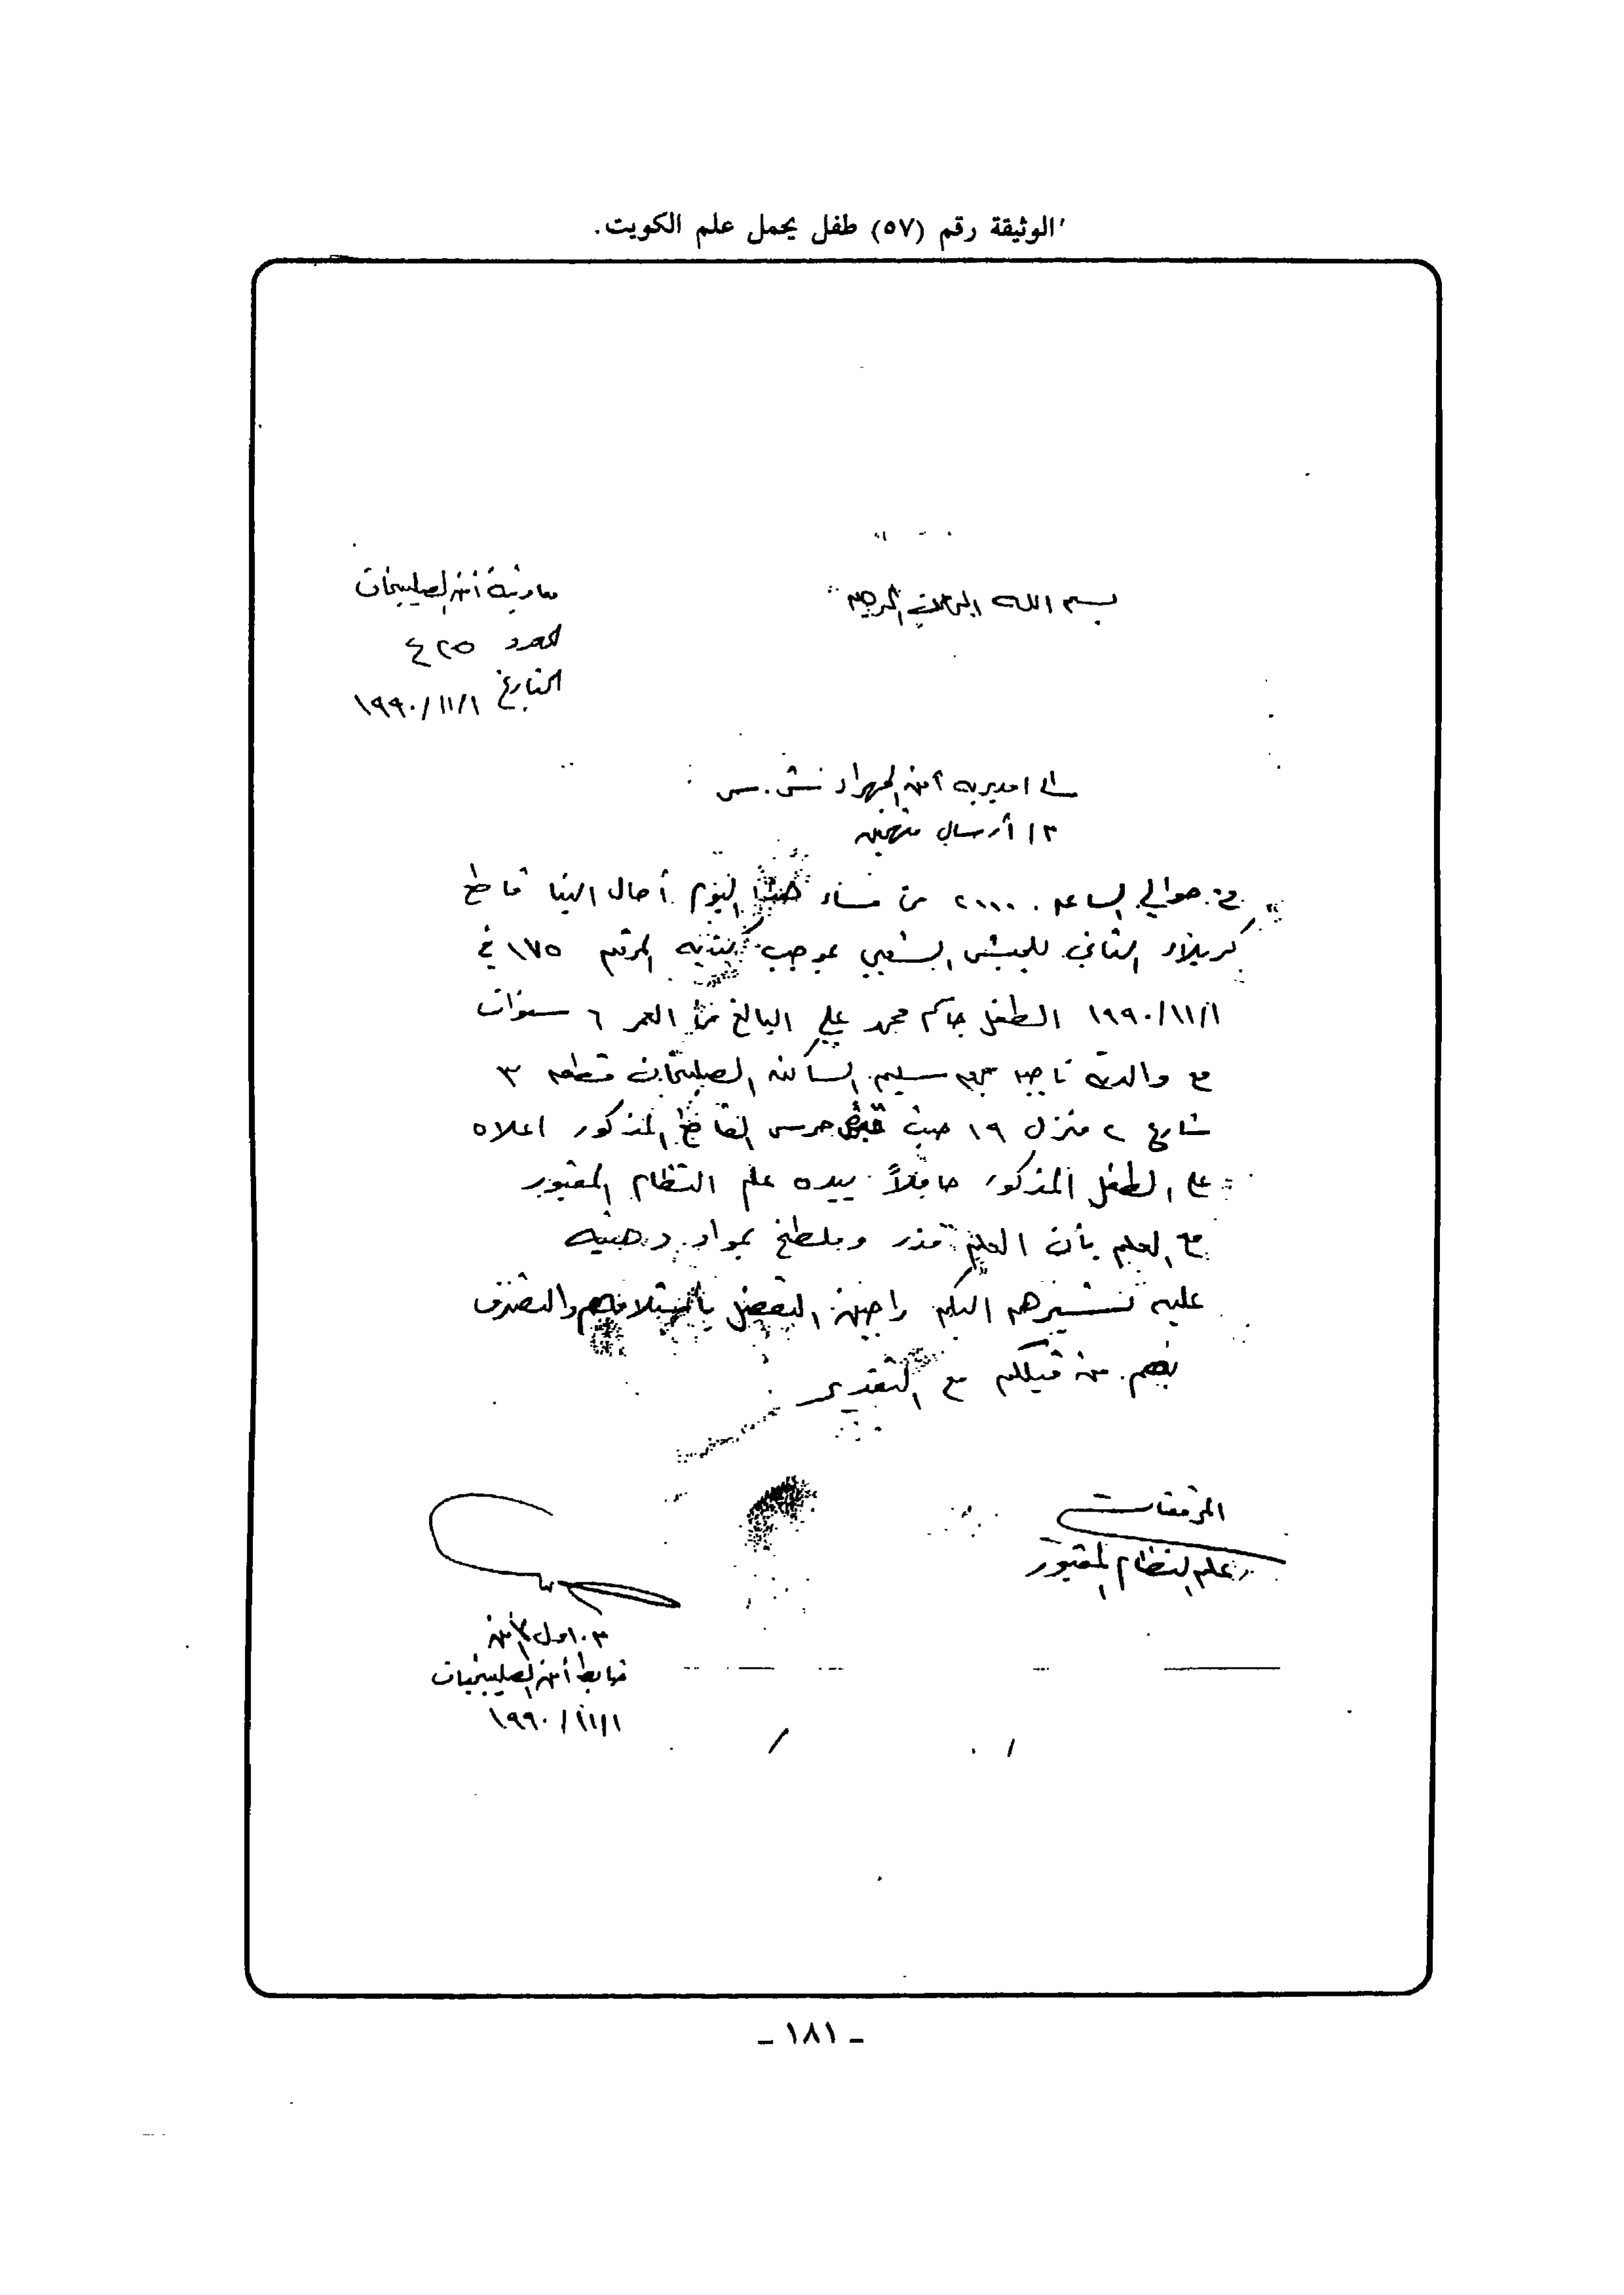 الوثيقة رقم (٥٧) طفل يحمل علم الكويت.
بسم الله الرحمن الرحيم
معاونية أمن الصليبخات
العدد ٤٢٥
التاريخ ١٩٩٠/١١/١
الى / مديريه أمن الجهراء
م / أرسال متهمين
في حوالي الساعه ٢٠٠٠ من مساء هذا اليوم أحال الينا قاطع
كربلاء الثاني للجيش الشعبي بموجب كتابه المرقم ١٧٥ في
١٩٩٠/١١/١ الطفل جاسم محمد علي البالغ من العمر ٦ سنوات
مع والدته سليم الساكنه الصليبخات قطعه ٣
شارع ٢ منزل ١٩ حيث قبض حرس القاطع المذكور اعلاه
على الطفل المذكور حاملاً بيده علم النظام المقبور
مع العلم بأن العلم قذر وملطخ بمواد دهنيه
عليه نسيرهم اليكم راجين التفضل بأستلامهم والتصرف
بهم من قبلكم مع التقدير
المرفقات
علم النظام المقبور
م. اول أمن
ضابط أمن الصليبخات
١٩٩٠/١١/١
- ١٨١ -